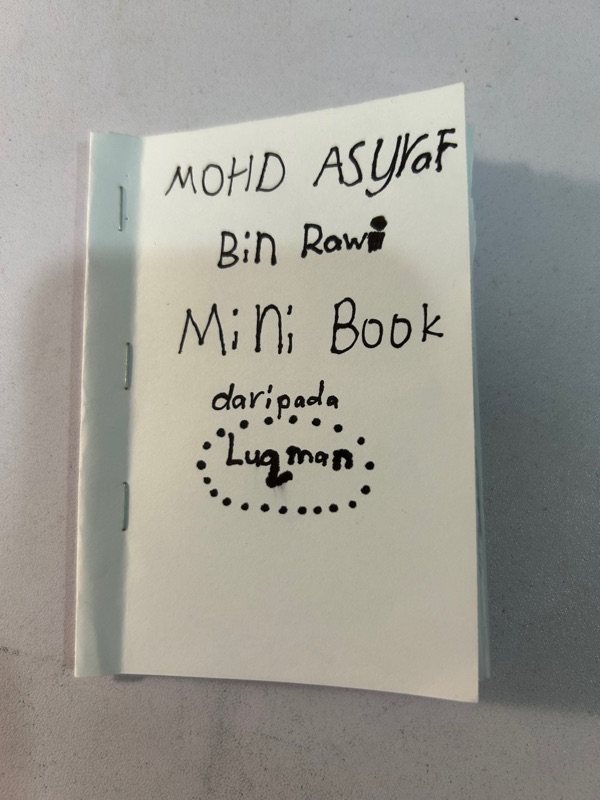 MOHD ASYraF
Bin Rawi
MiNi Book
daripada
Luqman